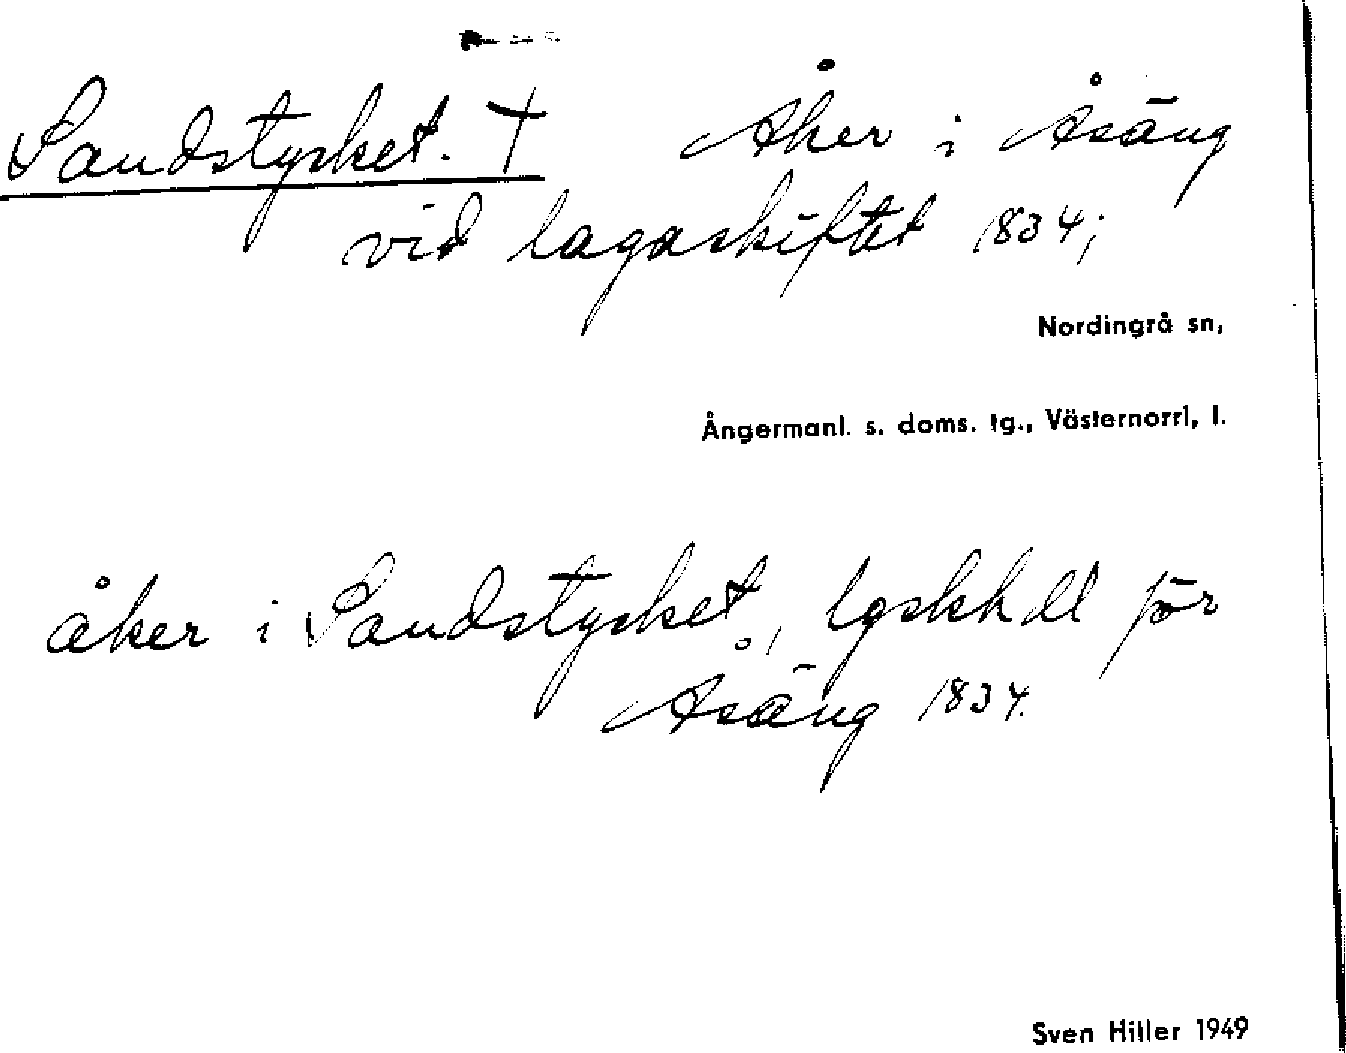 Sandstycket. † Åker i Åsäng
vid lagaskiftet 1834;
Nordingrå sn,
Ångermanl. s. doms. tg., Västernorrl, l.
åker i Sandstycket, lgskhdl för
Åsäng 1834.
Sven Hiller 1949